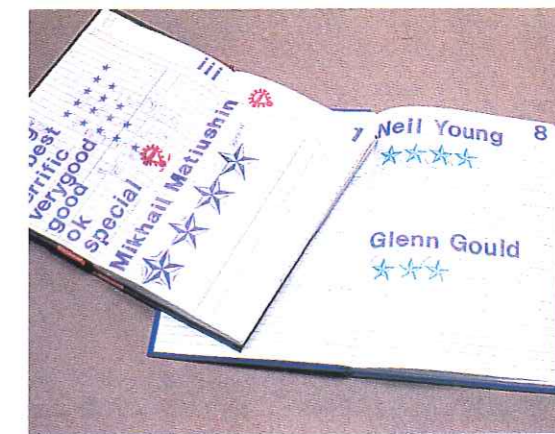 iii
best
terrific
verygood
good
ok
special
Mikhail Matiushin
7
8
Neil Young
Glenn Gould